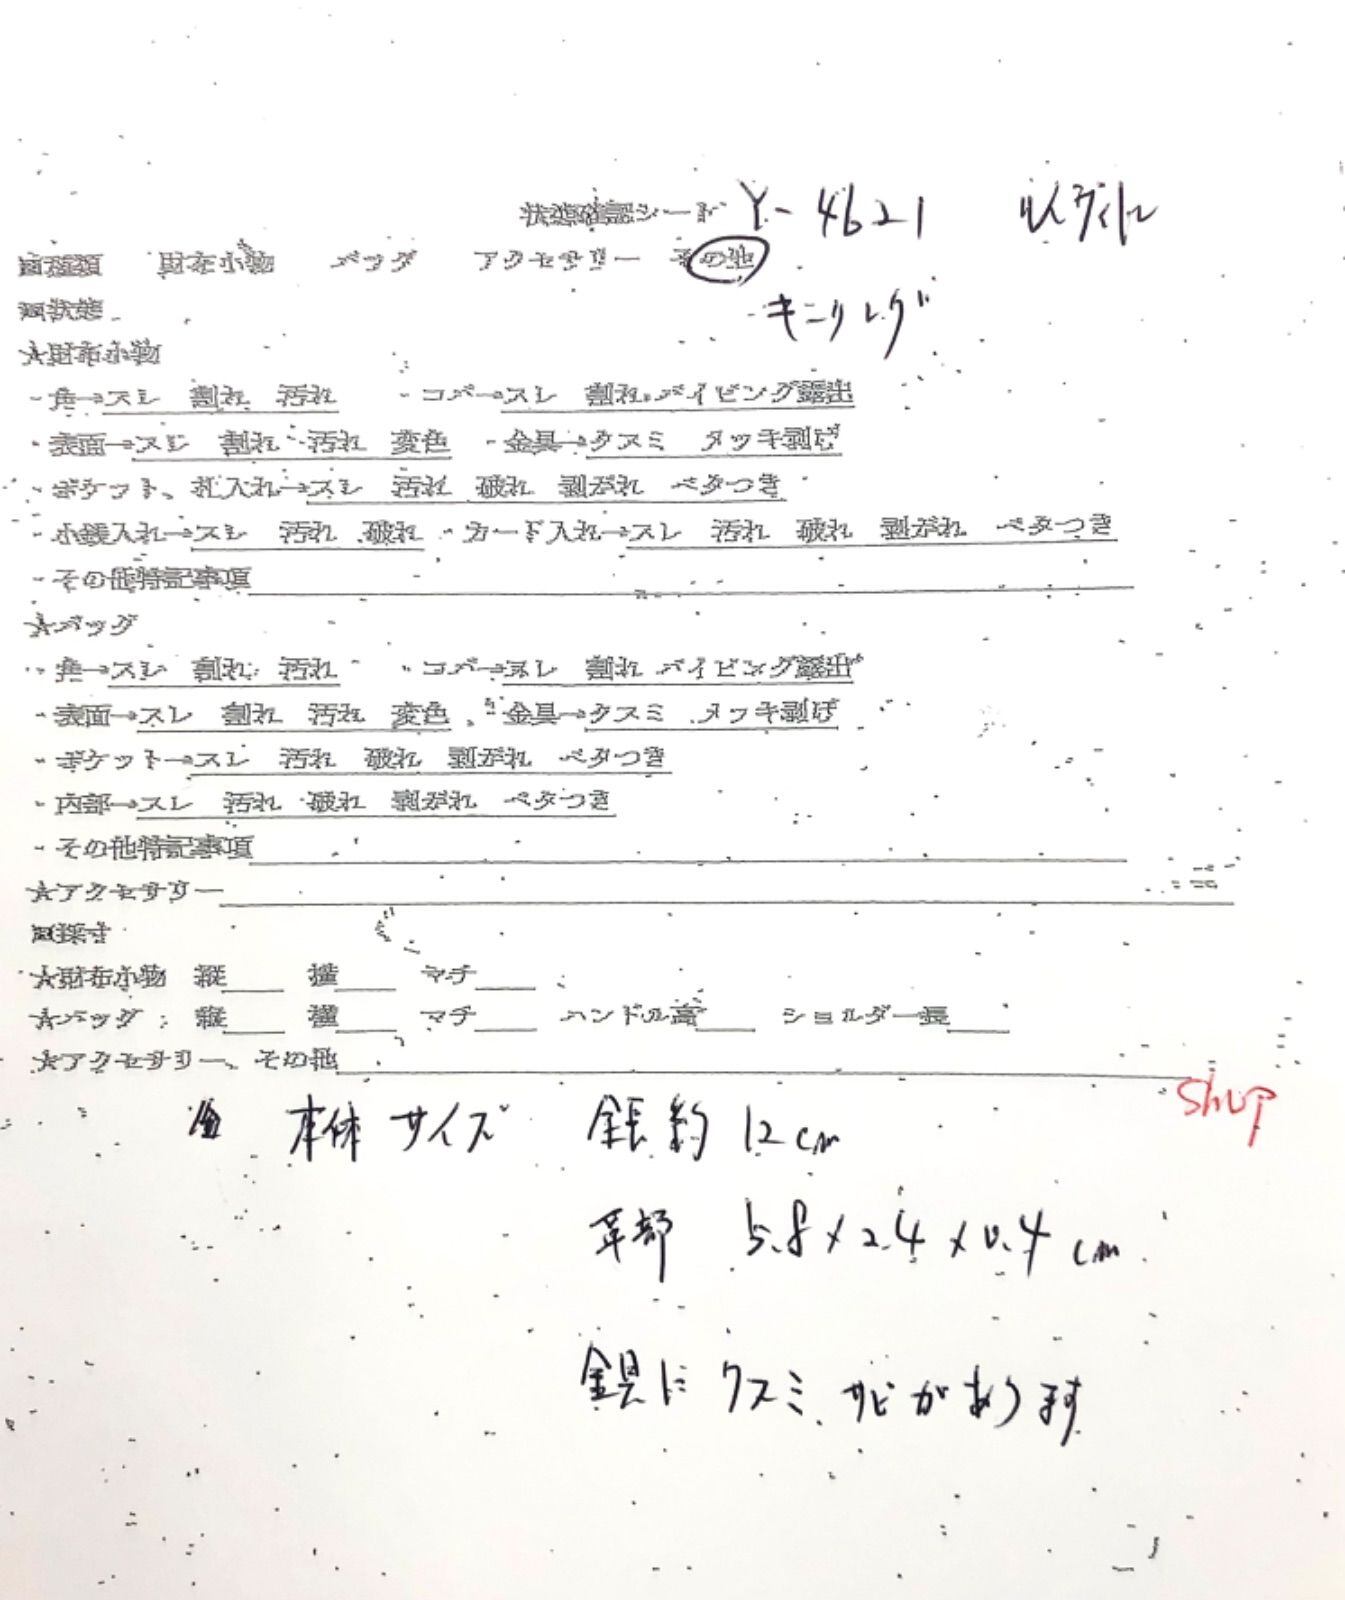 状態確認シート Y-4621 ルイヴィトン
■種類 財布小物 バッグ アクセサリー その他
■状態 キーリング
★財布小物
・角→スレ 割れ 汚れ ・コバ→スレ 割れ パイピング露出
・表面→スレ 割れ 汚れ 変色 ・金具→クスミ メッキ剥げ
・ポケット、札入れ→スレ 汚れ 破れ 剥がれ ベタつき
・小銭入れ→スレ 汚れ 破れ ・カード入れ→スレ 汚れ 破れ 剥がれ ベタつき
・その他特記事項
★バッグ
・角→スレ 割れ 汚れ ・コバ→スレ 割れ パイピング露出
・表面→スレ 割れ 汚れ 変色 ・金具→クスミ メッキ剥げ
・ポケット→スレ 汚れ 破れ 剥がれ ベタつき
・内部→スレ 汚れ 破れ 剥がれ ベタつき
・その他特記事項
★アクセサリー
■採寸
★財布小物 縦 横 マチ
★バッグ 縦 横 マチ ハンドル高 ショルダー長
★アクセサリー、その他
shop
本体サイズ 全長約12cm
革部 5.8×2.4×0.4cm
金具にクスミ、サビがあります